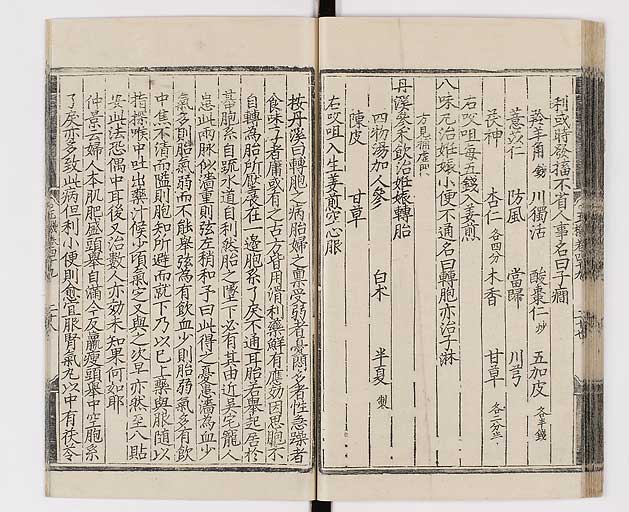 利或時發搐不省人事名曰子癎
羚羊角 鎊 川獨活 酸棗仁 炒 五加皮 各半錢
薏苡仁 防風 當歸 川芎
茯神 杏仁 各四分 木香 甘草 各二分半
右㕮咀每五錢入姜煎
八味元治妊娠小便不通名曰轉胞亦治子淋
方見補虛門
丹溪參朮飲治妊娠轉胎
四物湯加人參 白朮 半夏 製
陳皮 甘草
右㕮咀入生姜煎空心服
按丹溪曰轉胞之病胎婦之稟受弱者憂悶多者性急躁者
食味厚者庸或有之古方皆用滑利藥鮮有應效因思胞不
自轉為胎所壓展在一邊胞系了戾不通耳胎若舉起居於
其中胞系自疏水道自利然胎之墜下必有其由近吳宅寵人
患此兩脉似濇重則弦左稍和予曰此得之憂患濇為血少
氣多則胎氣弱而不能舉弦為有飲血少則胎弱氣多有飲
中焦不清而隘則胞知所避而就下乃以已上藥與服隨以
指探喉中吐出藥汁候少頃氣定又與之次早亦然至八貼
安此法恐偶中耳後又治數人亦効未知果何如耶
仲景云婦人本肌肥盛頭舉自滿今反羸瘦頭舉中空胞系
了戾亦多致此病但利小便則愈宜服腎氣丸以中有茯苓